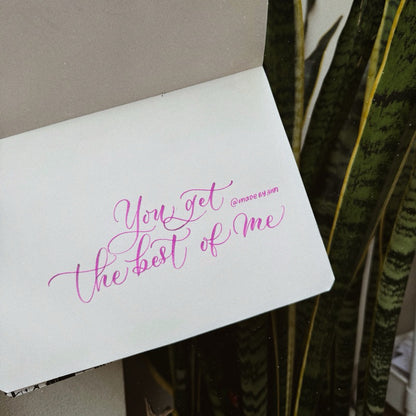 You get
@MADE BY HAN
the best of me